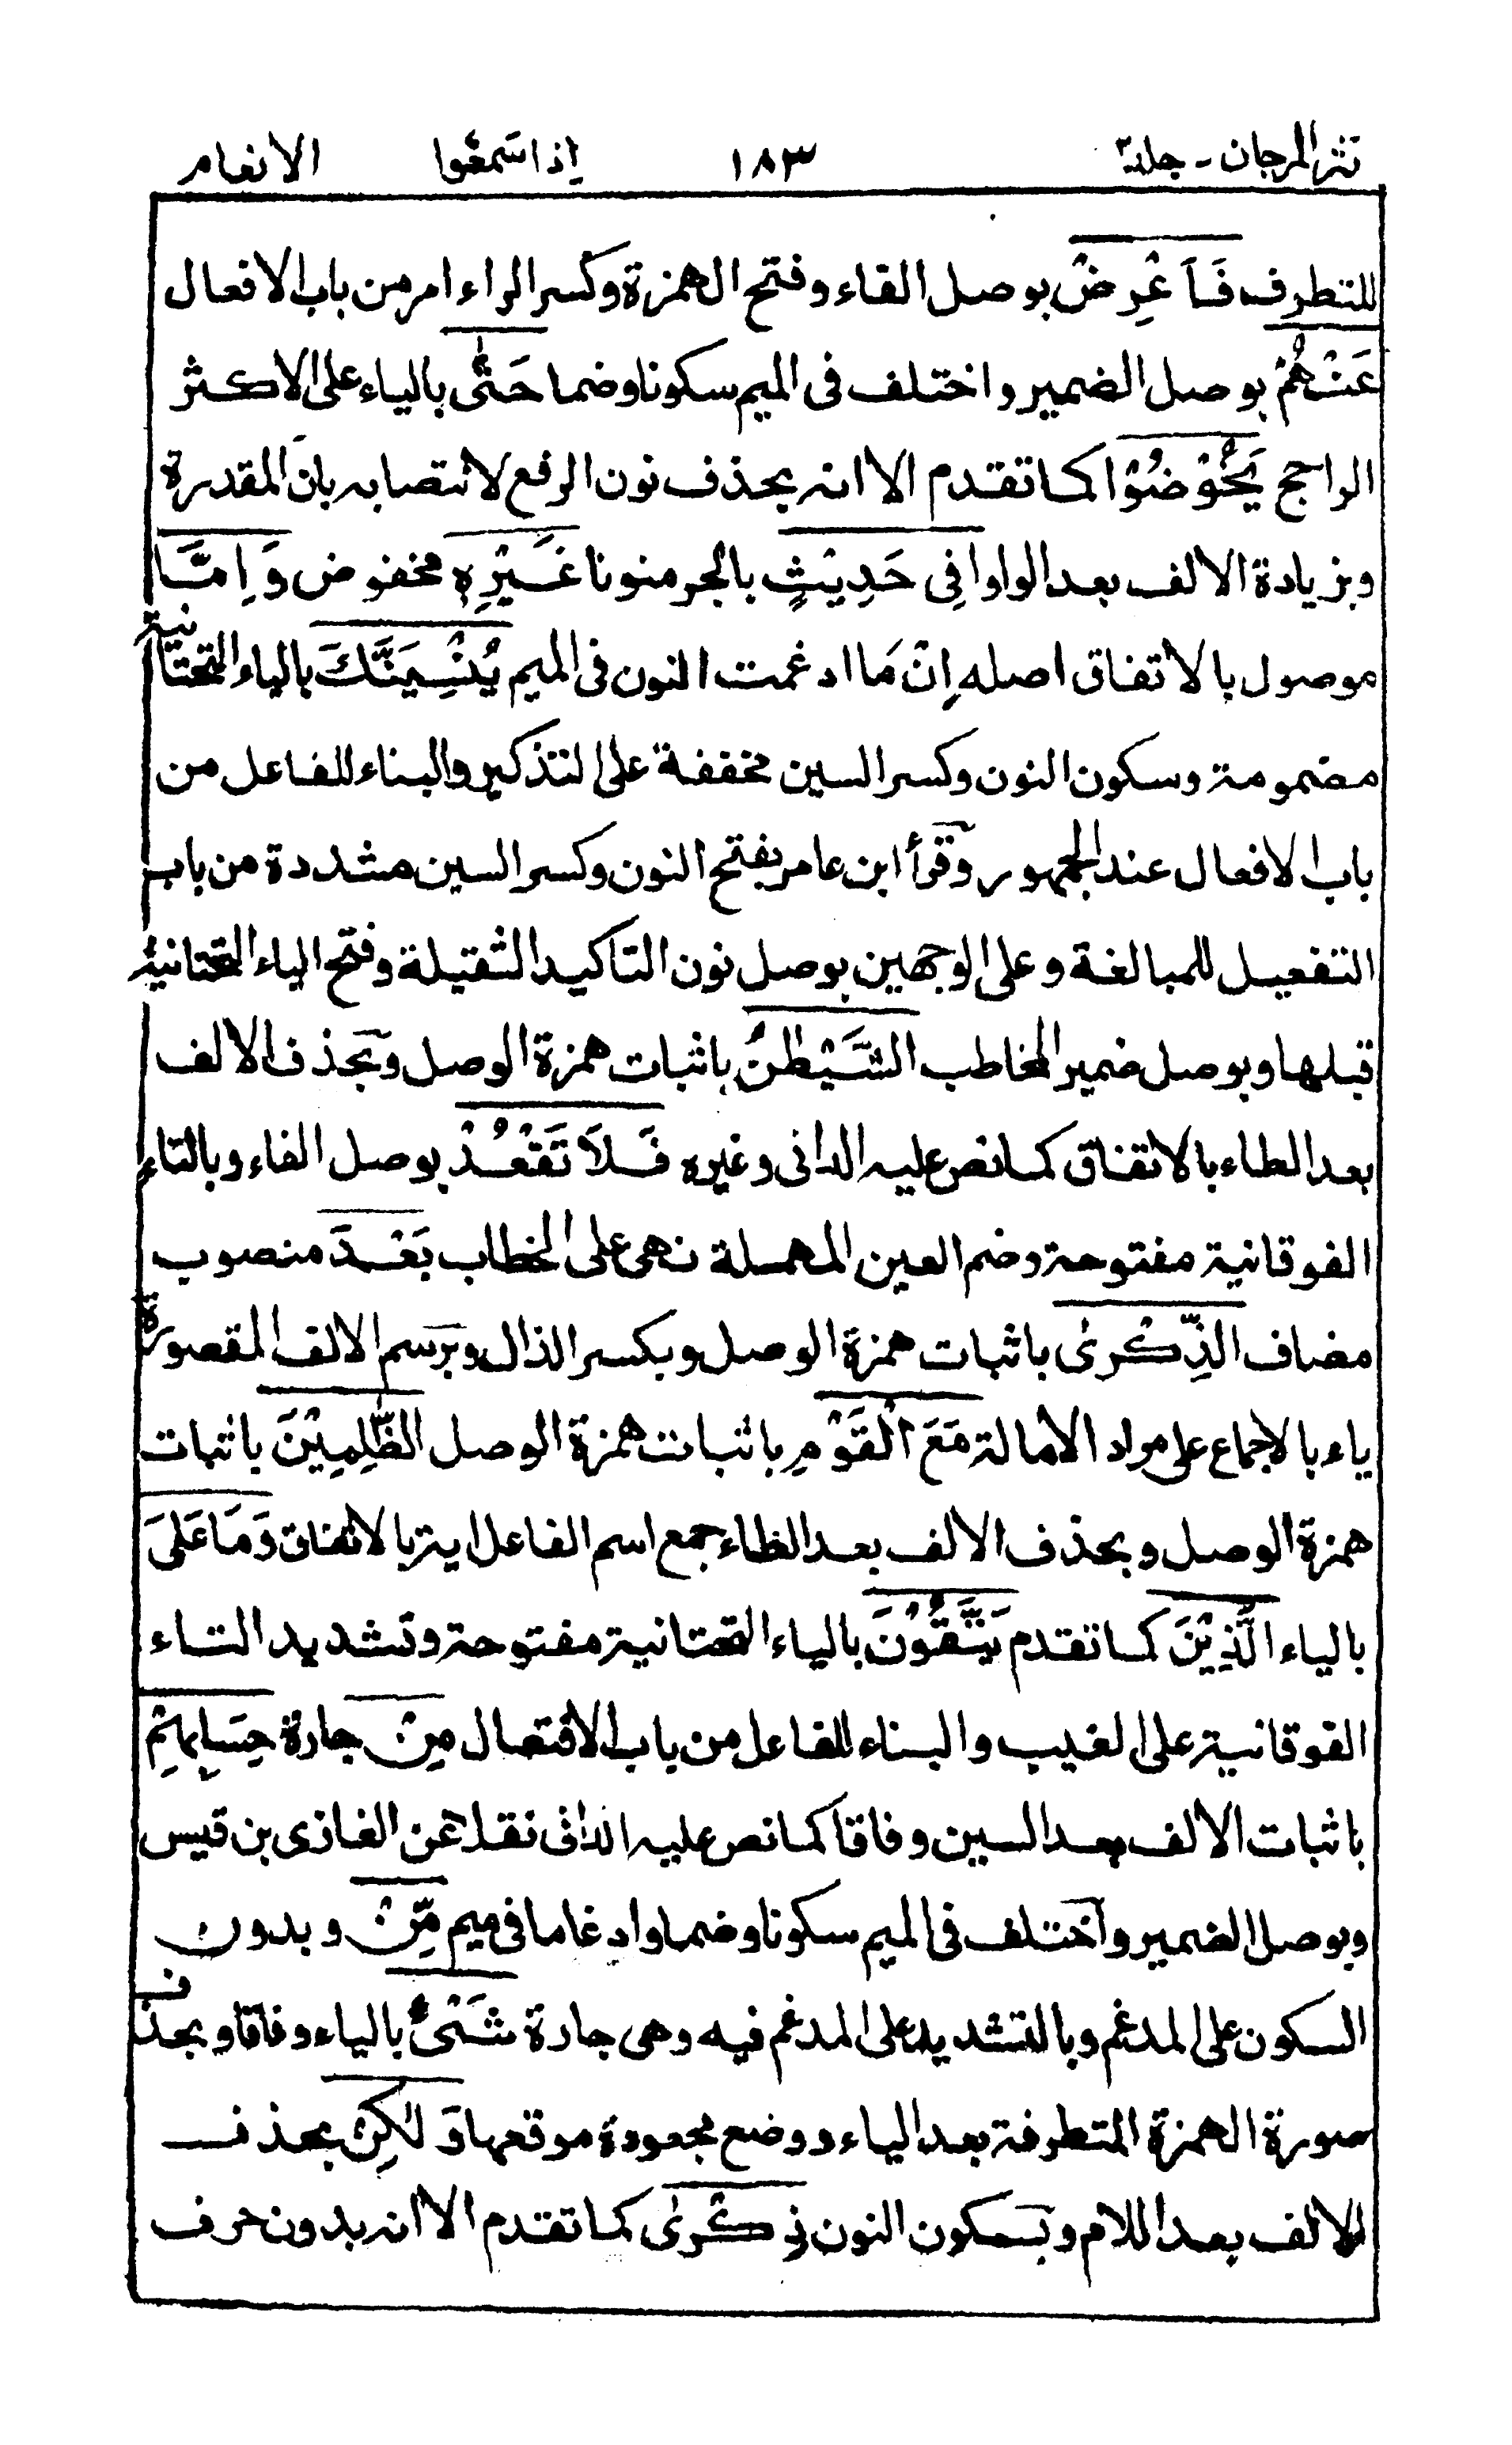 نثر المرجان - جلد۲ ١٨٣ اِذا سَمعُوا الانعام
للتطرف فَاَعْرِضْ بوصل الفاء وفتح الهمزة وكسر الراء امر من باب الافعال
عَنْهُمْ بوصل الضمير واختلف فى الميم سكونا وضما حَتّٰى بالياء على الاكثر
الراجح يَخُوْضُوْا كما تقدم الا انه بحذف نون الرفع لانتصابه بان المقدرة
وبزيادة الالف بعد الواو افِى حَدِيْثٍ بالجر منونا غَيْرِهٖ مخفوض وَاِمَّا
موصول بالاتفاق اصله اِنْ مَا ادغمت النون فى الميم يُنْسِيَنَّكَ بالياء التحتانية
مضمومة وسكون النون وكسر السين مخففة على التذكير والبناء للفاعل من
باب الافعال عند الجمهور وقرأ ابن عامر بفتح النون وكسر السين مشددة من باب
التفعيل للمبالغة وعلى الوجهين بوصل نون التاكيد الثقيلة وفتح الياء التحتانية
قبلها وبوصل ضمير المخاطب الشَّيْطٰنُ باثبات همزة الوصل وبحذف الالف
بعد الطاء بالاتفاق كما نص عليه الدانى وغيره فَلَا تَقْعُدْ بوصل الفاء وبالتاء
الفوقانية مفتوحة وضم العين المهملة نهى على الخطاب بَعْدَ منصوب
مضاف الذِّكْرٰى باثبات همزة الوصل وبكسر الذال وبرسم الالف المقصورة
ياء بالاجماع على مراد الامالة مَعَ الْقَوْمِ باثبات همزة الوصل الظّٰلِمِيْنَ باثبات
همزة الوصل وبحذف الالف بعد الظاء جمع اسم الفاعل اية بالاتفاق وَمَا عَلَى
بالياء الَّذِيْنَ كما تقدم يَتَّقُوْنَ بالياء التحتانية مفتوحة وتشديد التاء
الفوقانية على الغيب والبناء للفاعل من باب الافتعال مِنْ جارة حِسَابِهِمْ
باثبات الالف بعد السين وفاقا كما نص عليه الدانى نقلا عن الغازى بن قيس
وبوصل الضمير واختلف فى الميم سكونا وضما وادغاما فى ميم مِّنْ وبدون
السكون على المدغم وبالتشديد على المدغم فيه وهى جارة شَىْءٍ بالياء وفاقا وبحذف
صورة الهمزة المتطرفة بعد الياء ووضع مجعودة موقعها وَلٰكِنْ بحذف
الالف بعد اللام وبسكون النون ذِكْرٰى كما تقدم الا انه بدون حرف